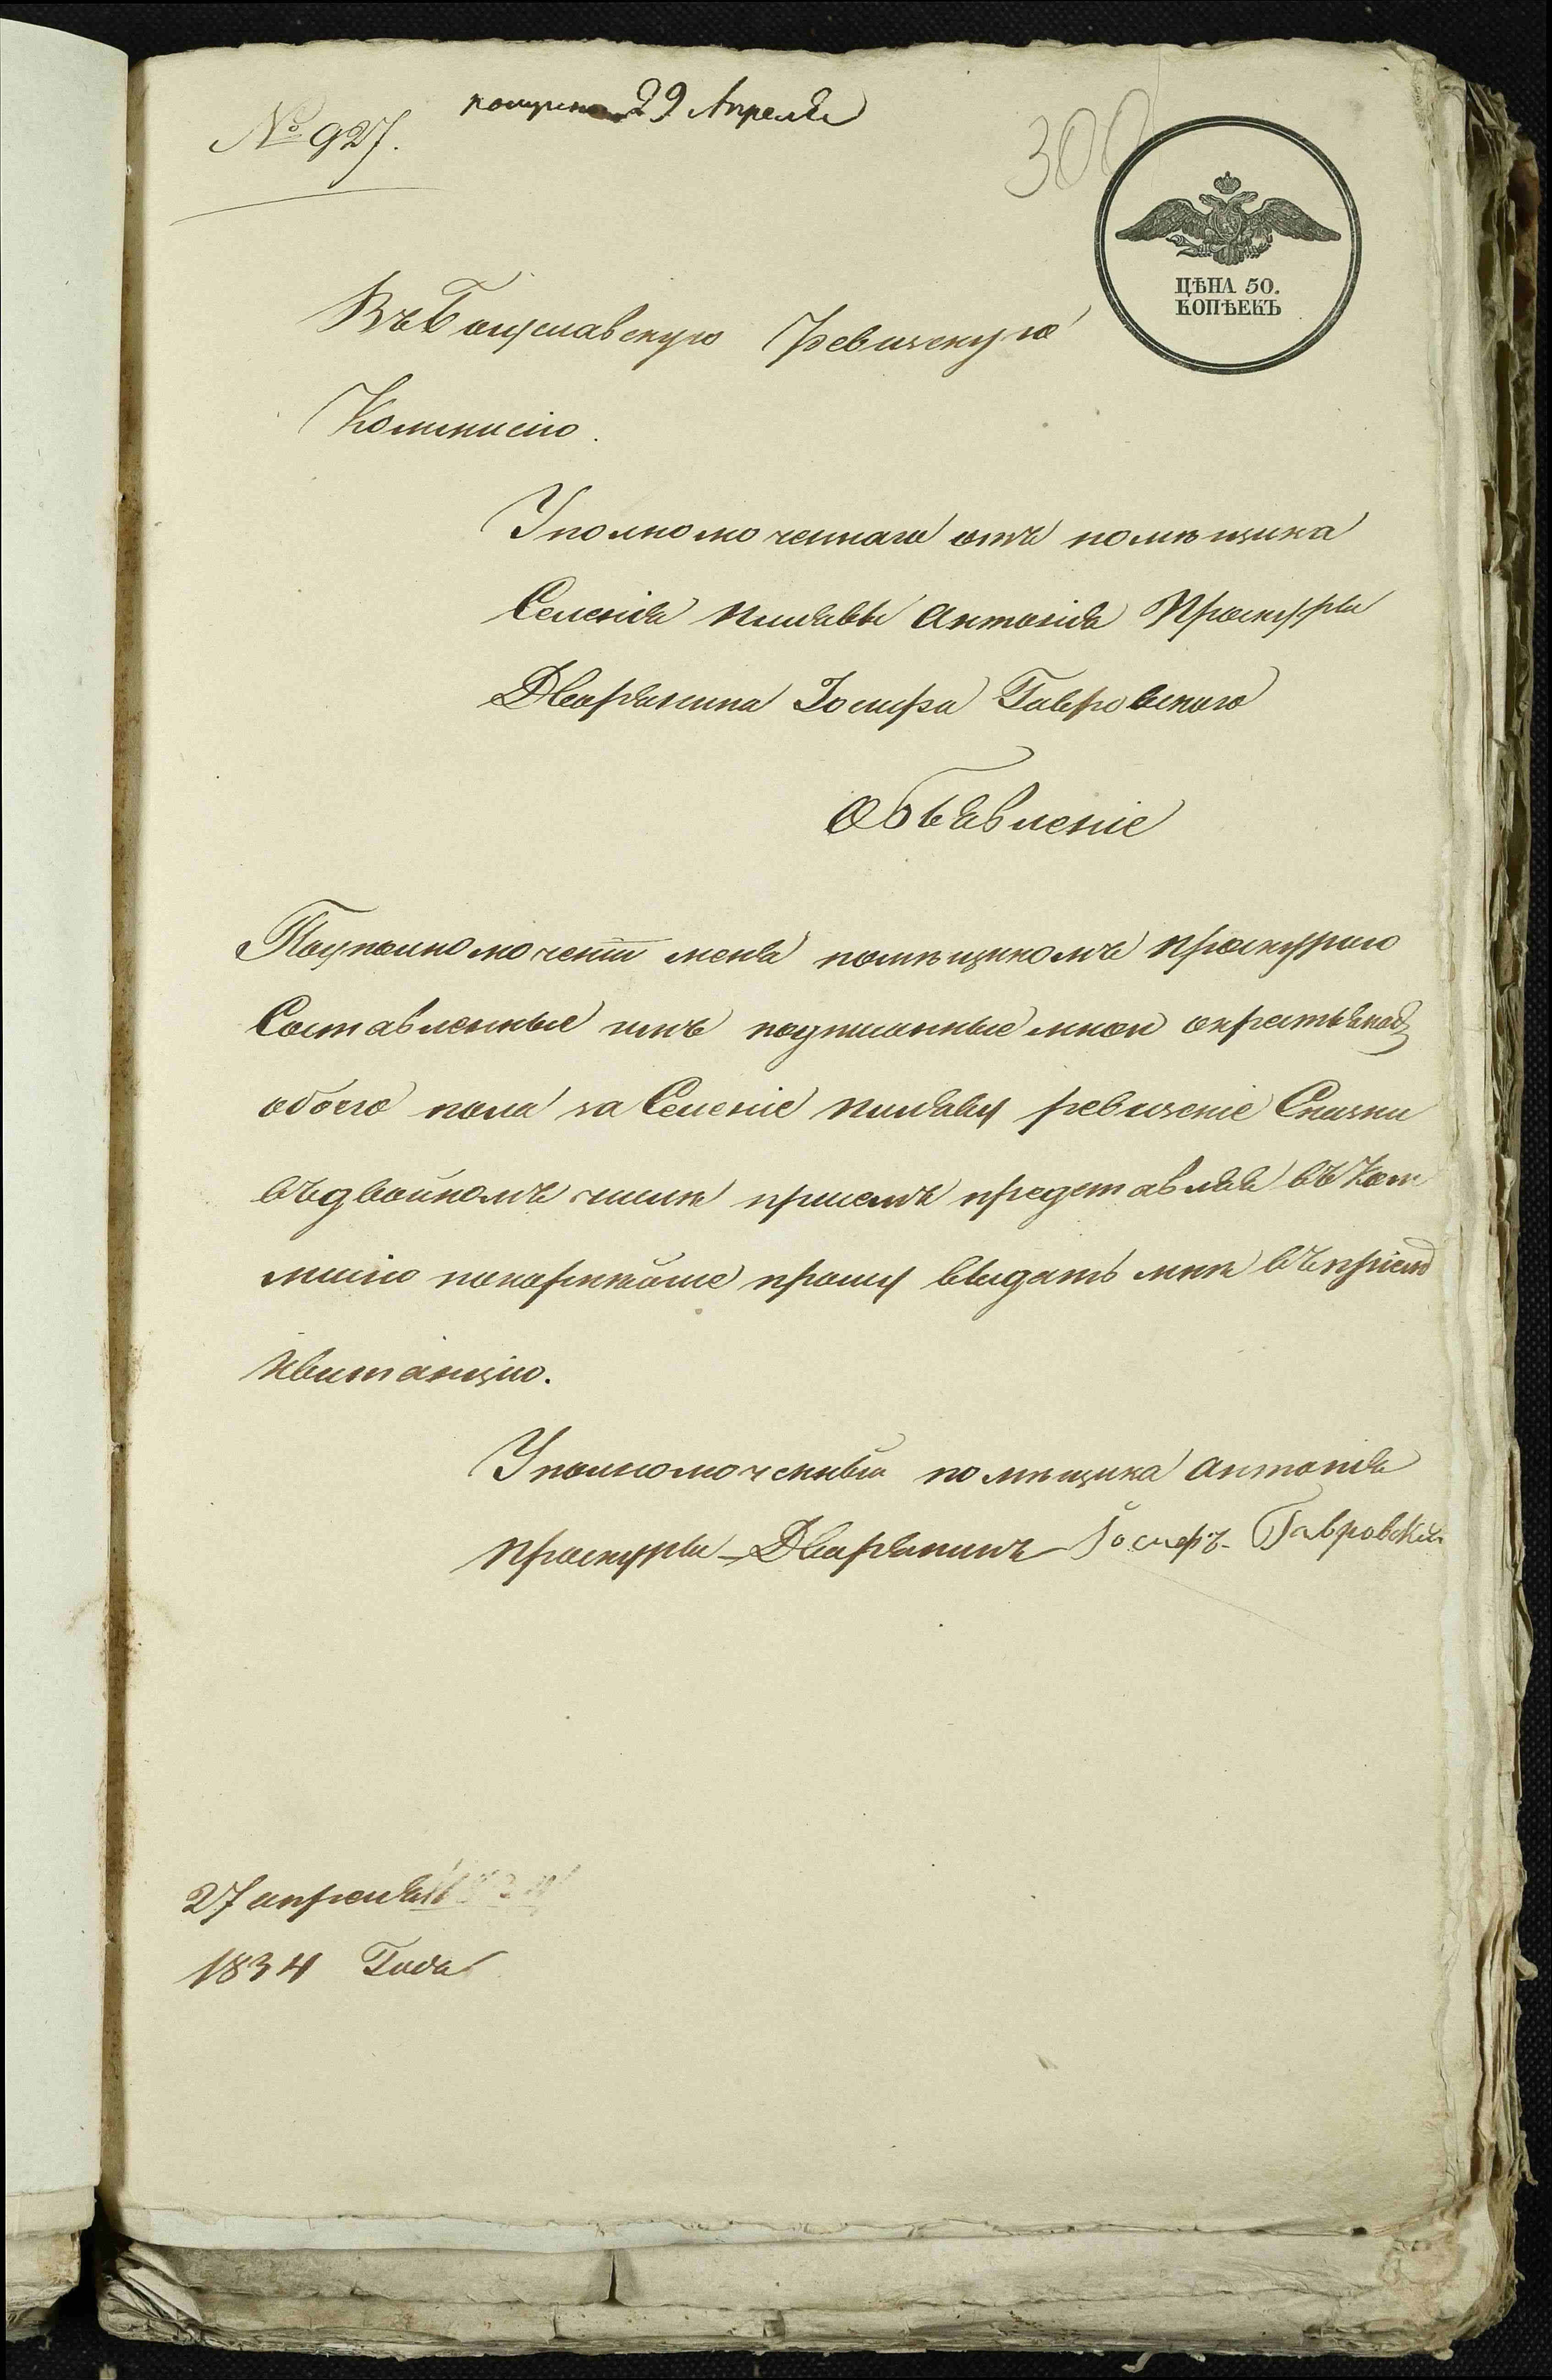 № 927.
получено 29 Апреля
300
ЦѢНА 50.
КОПѢЕКЪ
Въ Богуславскую Ревизскую
Коммисію.
Уполномоченнаго отъ помѣщика
Селенія Пилявы Антонія Проскуры
Дворянина Іосифа Гавровского
Объявленіе
По уполномочению меня помѣщикомъ Проскурою
Составленные имъ подписанные мною о крестьянахъ
обоего пола за Селеніе Пиляву ревизскіе Сказки
въ двойномъ числѣ присемъ представляя въ Ком
мисію покорнѣйше прошу выдать мнѣ въ пріемѣ
Квитанцію.
Уполномоченный помѣщика Антонія
Проскуры Дворянинъ Іосифъ Гавровскій
27 апреля
1834 Года